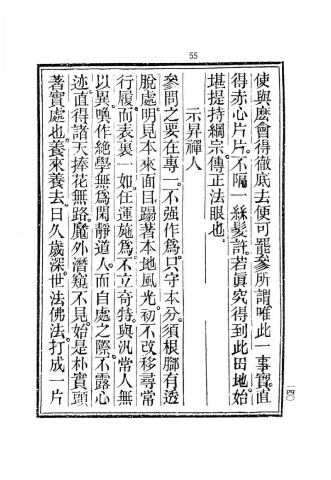 55
使與麼會得徹底去便可罷參所謂唯此一事實直
得赤心片片不隔一絲髮許若眞究得到此田地始
堪提持綱宗傳正法眼也
示昇禪人
參問之要在專一不强作爲只守本分須根腳有透
脫處明見本來面目蹋著本地風光初不改移尋常
行履而表裏一如任運施爲不立奇特與汎常人無
以異喚作絕學無爲閑靜道人而自處之際不露心
迹直得諸天捧花無路魔外潛窺不見始是朴實頭
著實處也養來養去日久歲深世法佛法打成一片
一四〇